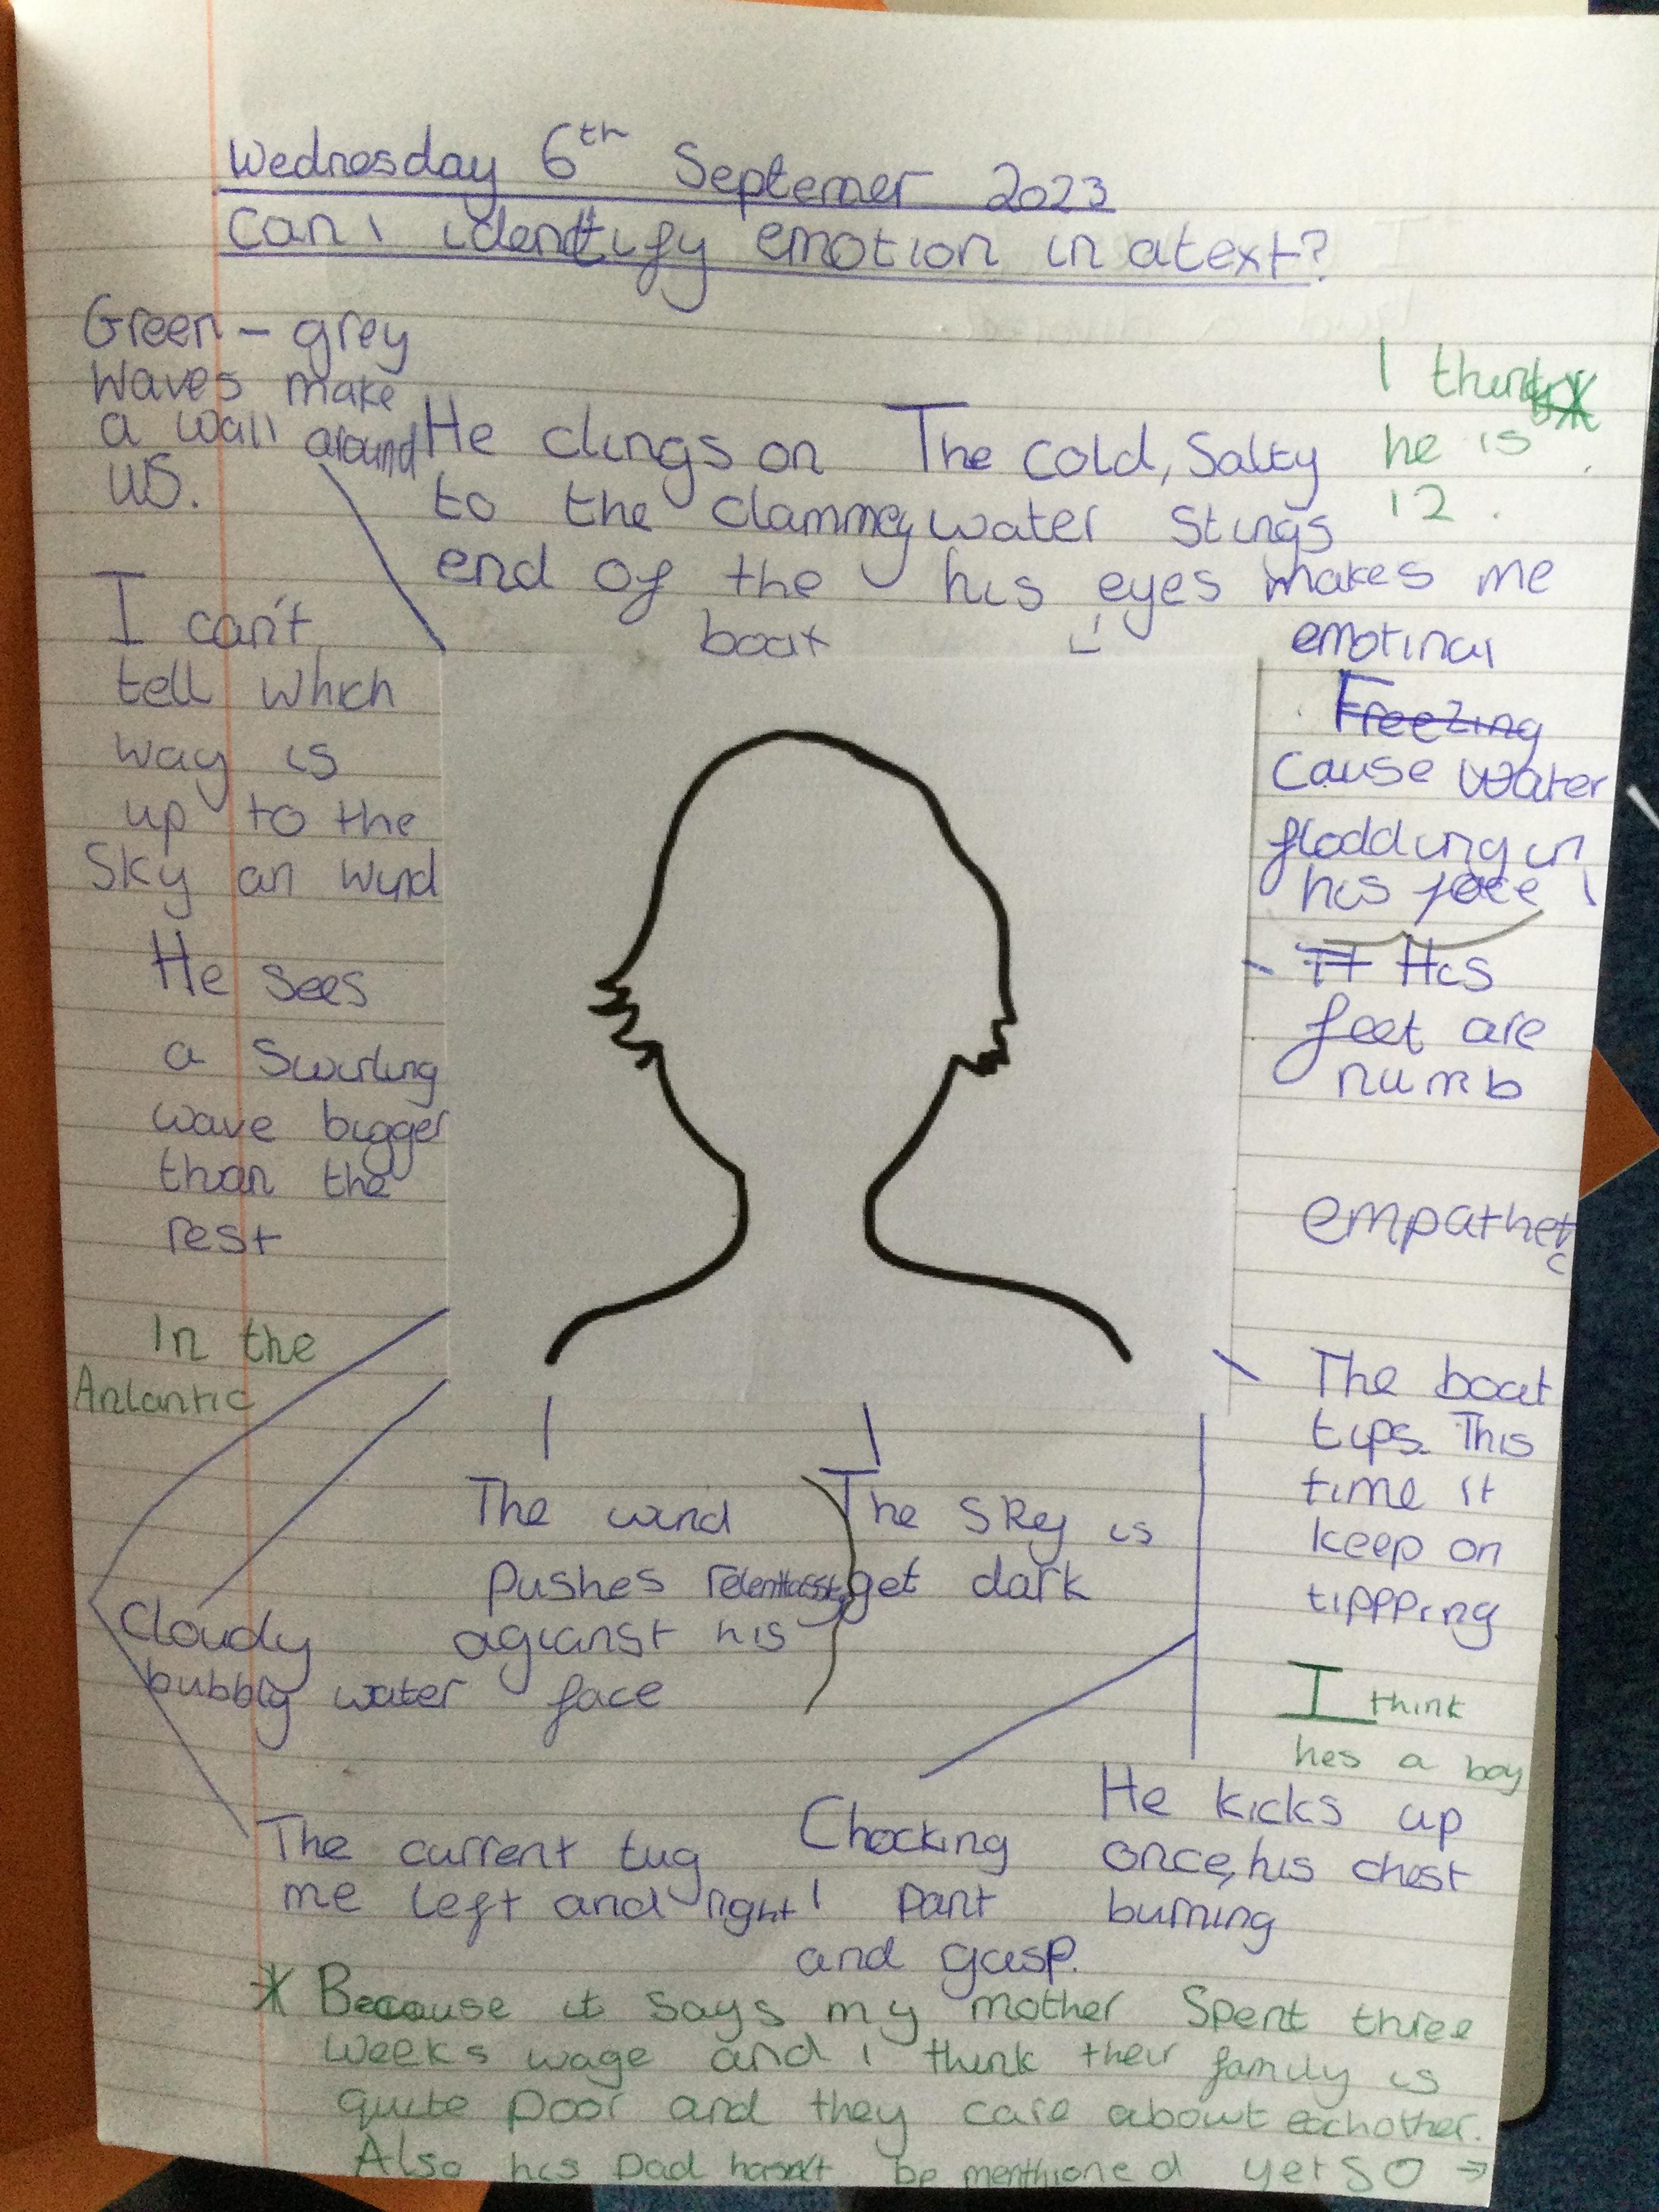 Wednesday 6th Septemer 2023
Can i identify emotion in a text?
Green - grey
waves make
a wall around
us.
He clings on
to the clammey
end of the
boat
The cold, Salty
water stings
his eyes makes me
emotinal
I think
he is
12.
I can't
tell which
way is
up to the
Sky an wind
Freezing
Cause water
flodding in
his face
He sees
a swirling
wave bigger
than the
rest
It His
feet are
numb
empathetc
In the
Anlantic
The boat
tips. This
time it
keep on
tippping
The wind
pushes
agianst his
face
The sky is
get dark
Cloudy
bubbly water
I think
hes a boy
The current tug
me left and right
Chocking
I pant
and gasp.
He kicks up
once, his chest
burning
* Because it says my mother spent three
weeks wage and i think their family is
quite poor and they care about eachother.
Also his Dad hasn't be menthioned yet so →